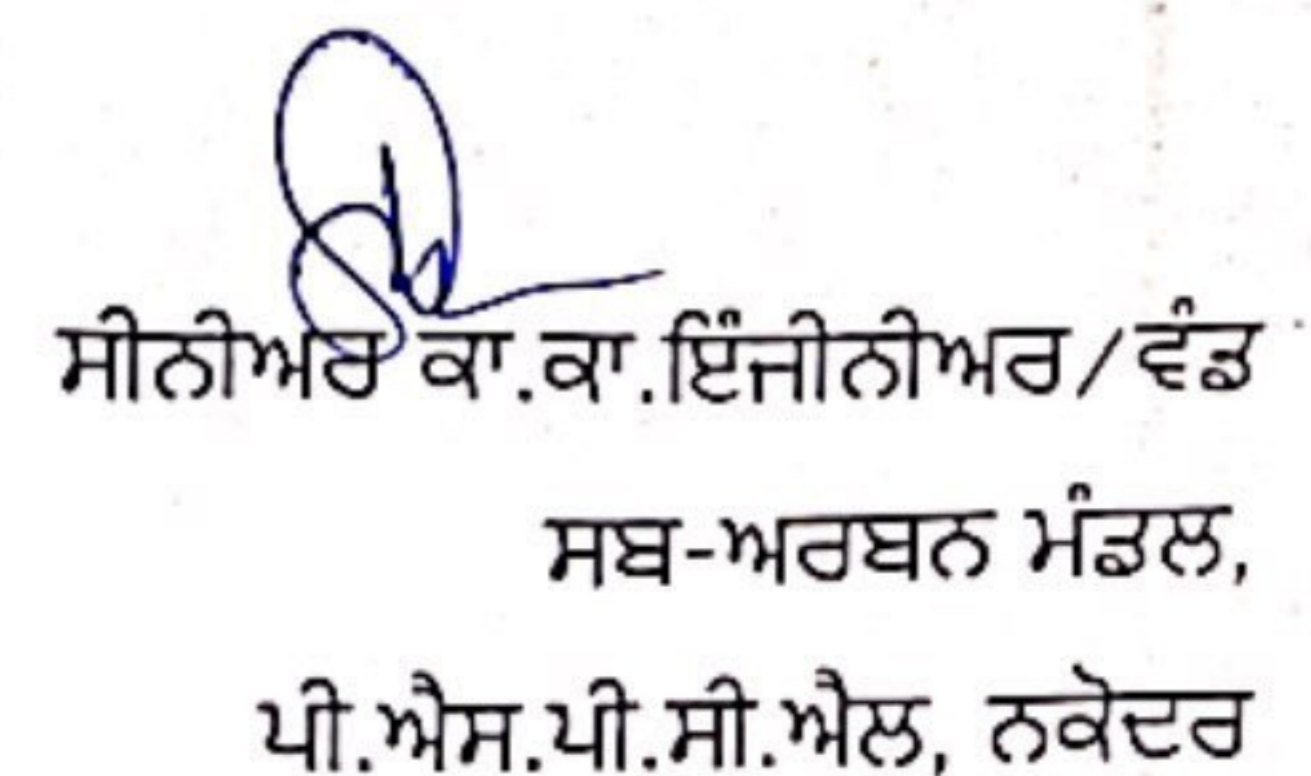 ਸੀਨੀਅਰ ਕਾ.ਕਾ.ਇੰਜੀਨੀਅਰ/ਵੰਡ
ਸਬ-ਅਰਬਨ ਮੰਡਲ,
ਪੀ.ਐਸ.ਪੀ.ਸੀ.ਐਲ, ਨਕੋਦਰ